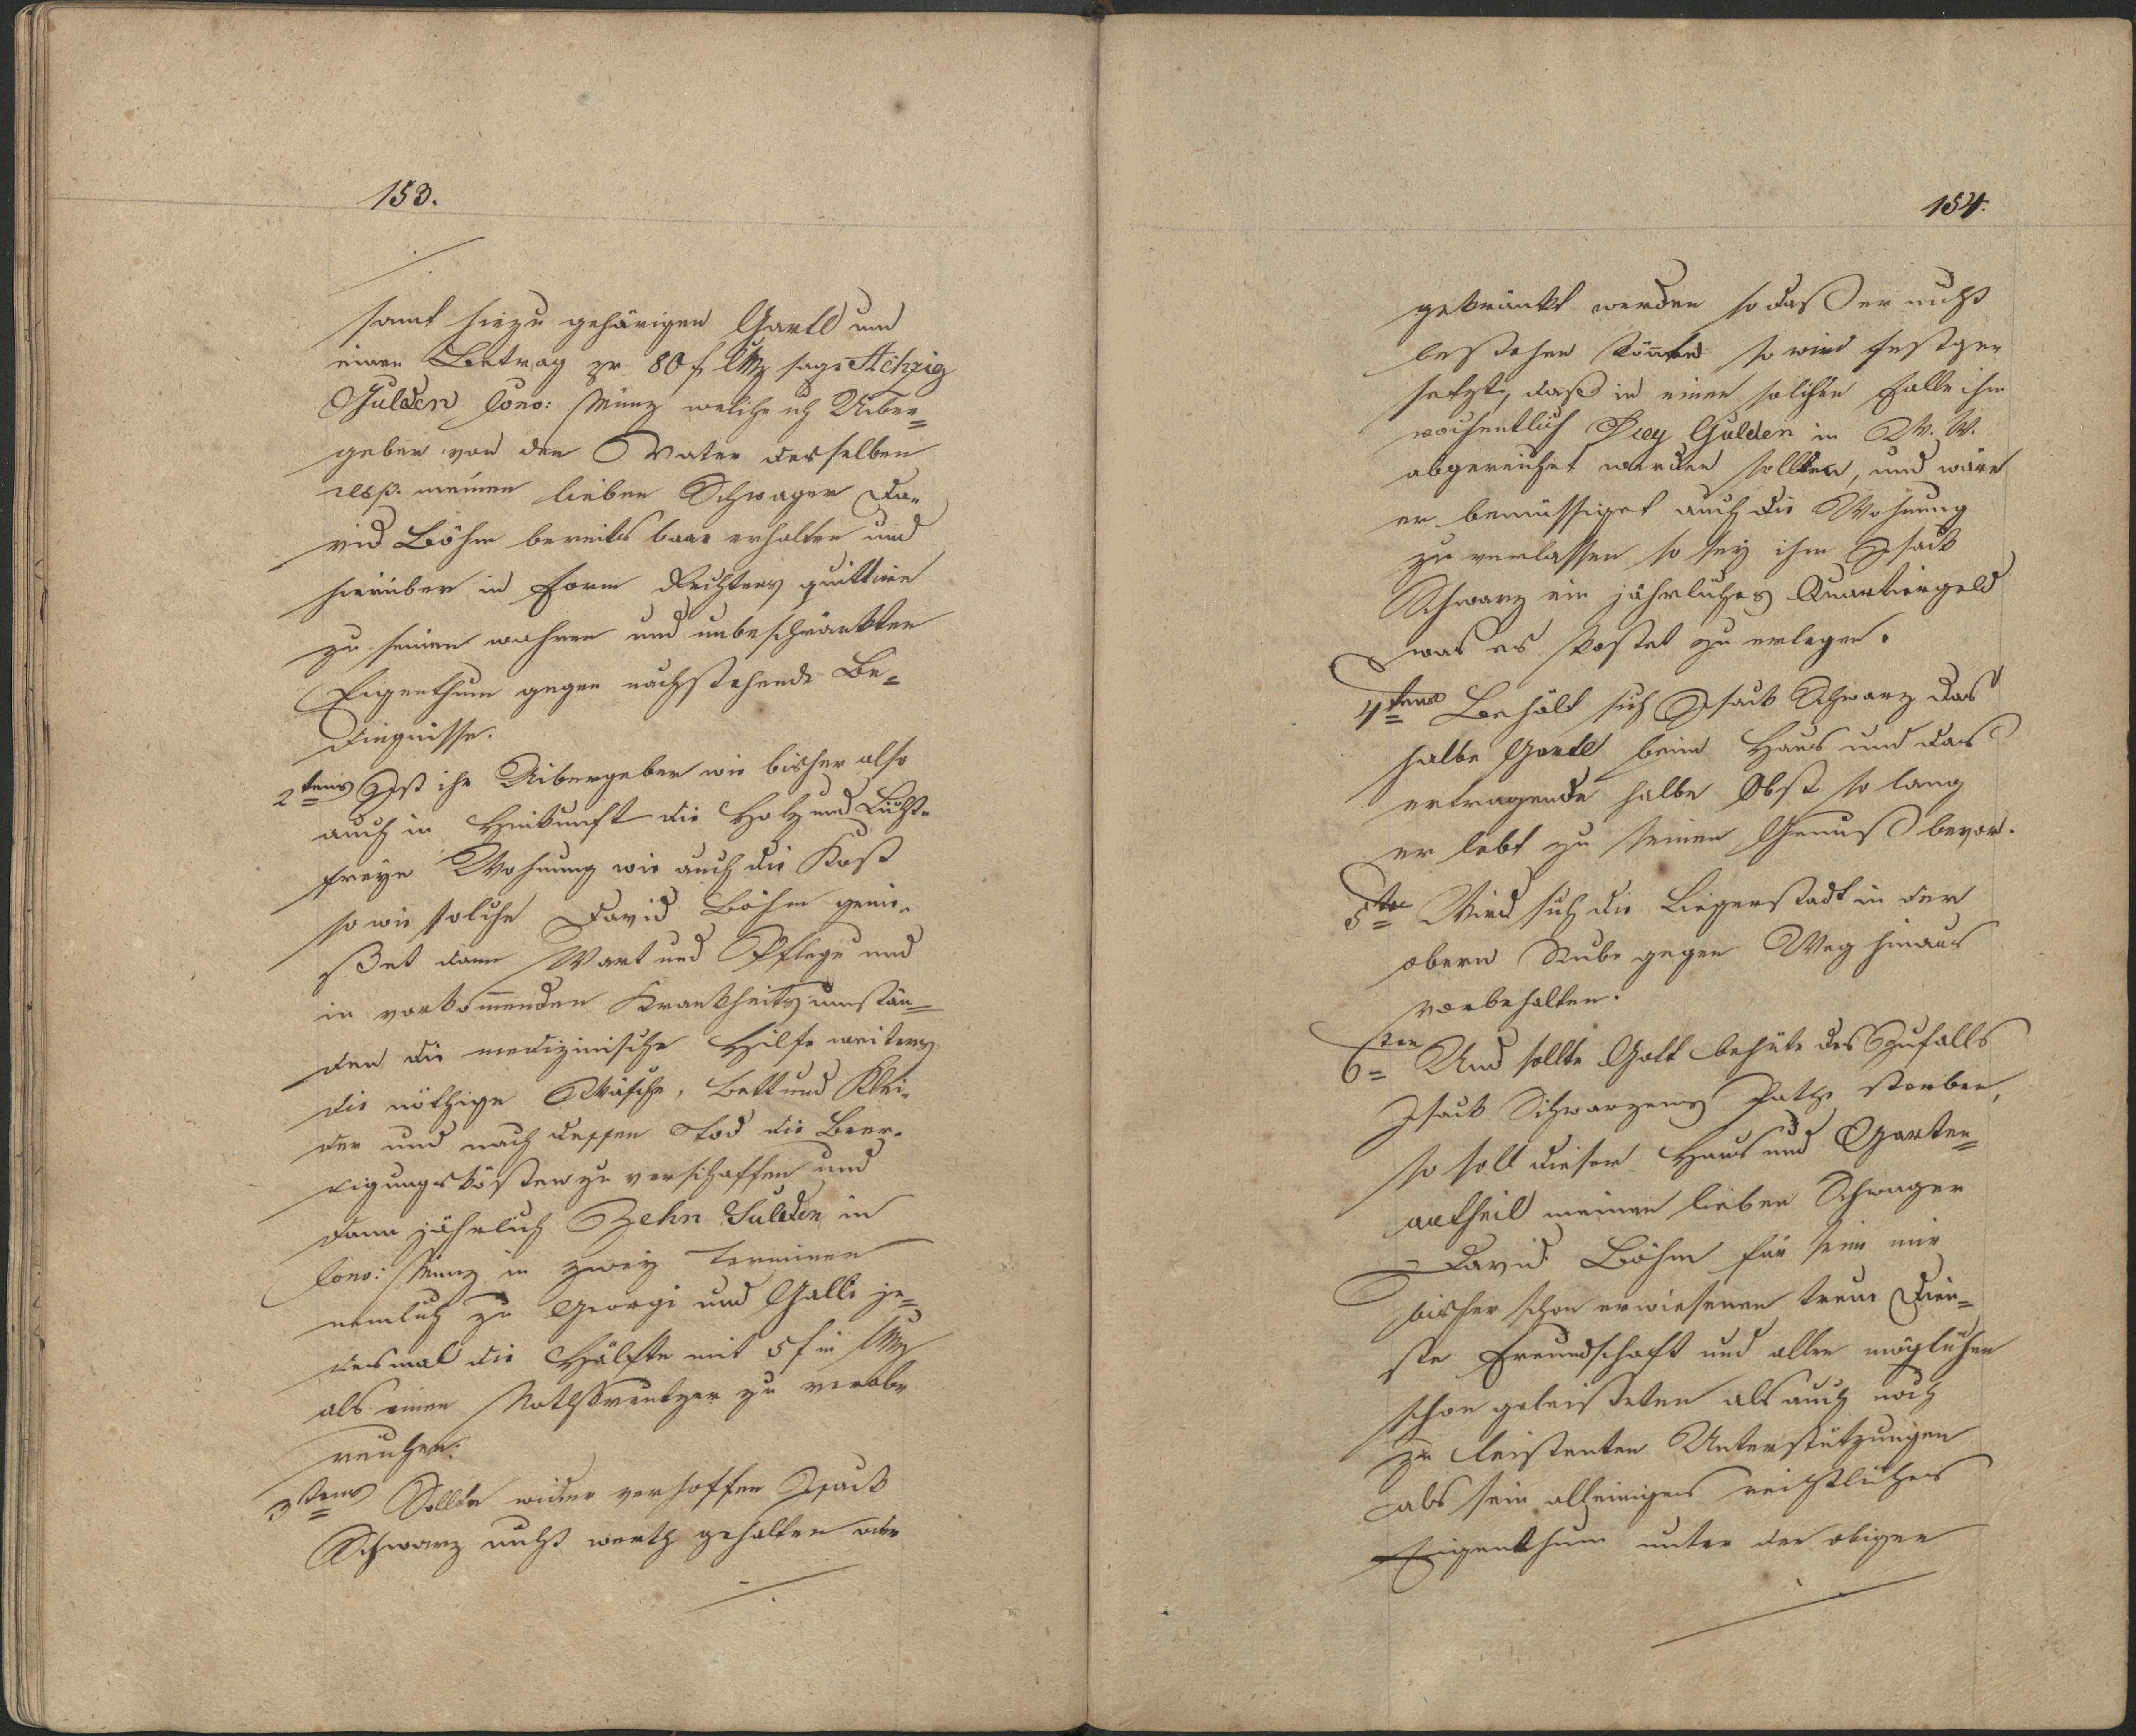 153.
samt hiezu gehörigen Gartl um
einen Betrag pr 80 f CMz sage Achzig
Gulden Conv: Münz welche ich Uiber=
geber von den Vater desselben
resp. meinen lieben Schwager Da-
vid Böhm bereits baar erhalten und
hierüber in Form Rechtens quittire
zu seinen wahren und unbeschränkten
Eigenthum gegen nachstehende Be=
dingnisse.
2tens Ist ihr Uibergeber wie bisher also
auch in Hinkunft die Holz und Licht-
freye Wohnung wie auch die Kost
so wie solche David Böhm genie-
ßet dann Wart und Pflege und
in vorkommenden Krankheitsumstän=
den die medizinische Hilfe weiters
die nöthige Wäsche, Bett und Klei-
der und nach dessen Tod die Beer-
digungskösten zu verschaffen und
dann jährlich Zehn Gulden in
Conv: Münz in zwey Terminen
nemlich zu Georgi und Galli je=
desmal die Hälfte mit 5 f in CMz
als einen Nothkreutzer zu verab-
reichen.
3tens Sollte wider verhoffen Isack
Schwarz nicht werth gehalten oder
154.
gekränkt werden so daß er nicht
bestehen könnte so wird festge-
setzt, daß in einen solchen Falle ihm
wochentlich Drey Gulden in W. W.
abgereichet werden sollten, und wäre
er bemüssiget auch die Wohnung
zu verlassen so sey ihm Isack
Schwarz ein jährliches Quartiergeld
was es kostet zu erlegen.
4tens Behält sich Isack Schwarz das
halbe Gartl beim Haus und das
ertragende halbe Obst so lang
er lebt zu seinen Genuß bevor.
5tens Wird sich die Liegerstadt in der
obern Stube gegen Weg hinaus
vorbehalten.
6tens Und sollte Gott behüte des Zufalls
Isack Schwarzens Pathe sterben,
so soll dieser Haus und Garten=
antheil meinen lieben Schwager
David Böhm für seine mir
bisher schon erwiesenen treue Dien=
ste Freundschaft und allen möglichen
schon geleisteten als auch noch
zu leistenten Unterstützungen
als sein alleiniges rechtliches
Eigenthum unter den obigen